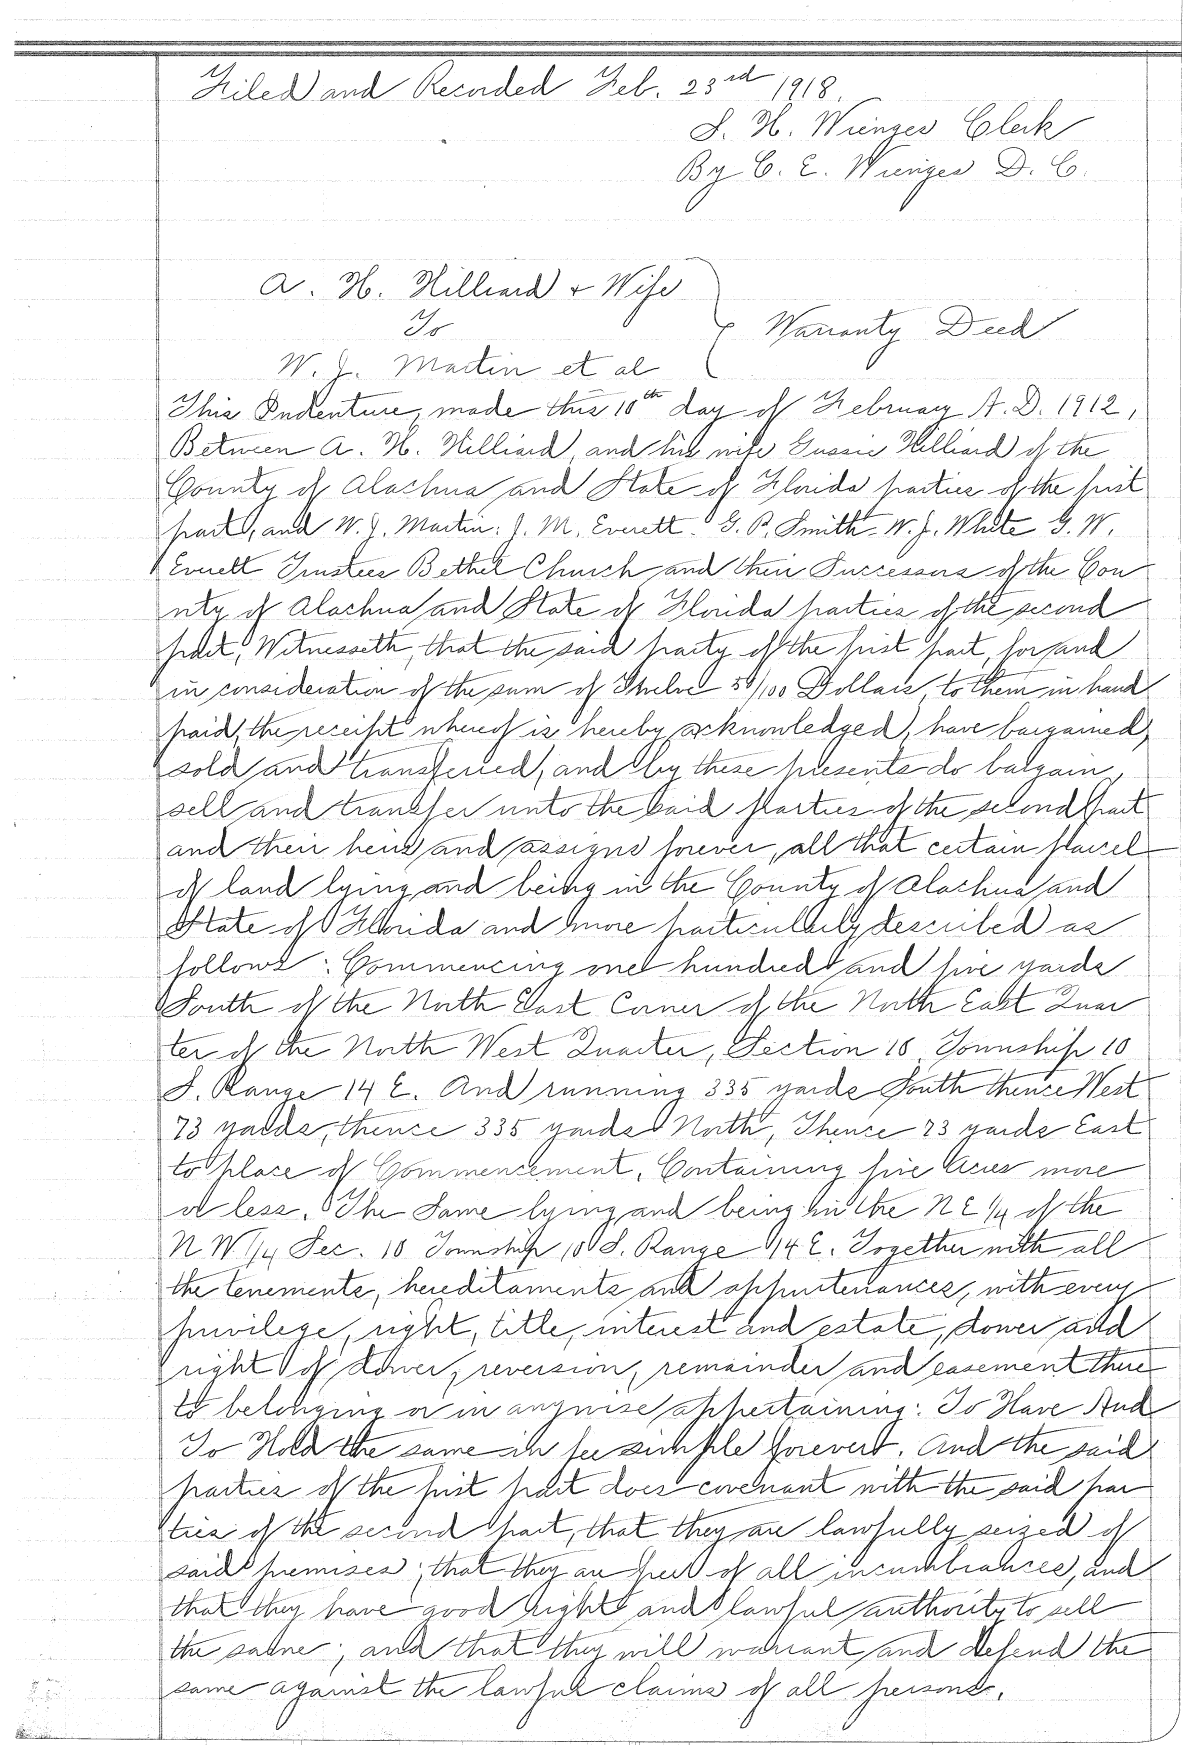 Filed and Recorded Feb. 23rd 1918.
S. H. Wienges Clerk
By C. E. Wienges D. C.
A. H. Hilliard + Wife
To
Warranty Deed
W. J. Martin et al
This Indenture, made this 10th day of February A. D. 1912,
Between A. H. Hilliard, and his wife Gussie Hilliard of the
County of Alachua and State of Florida parties of the first
part, and W. J. Martin. J. M. Everett. G. P. Smith. W. J. White G. W.
Everett Trustees Bethel Church and their Successors of the Cou
nty of Alachua and State of Florida parties of the second
part, Witnesseth, that the said party of the first part, for and
in consideration of the sum of Twelve 50/100 Dollars, to them in hand
paid, the receipt whereof is hereby acknowledged, have bargained,
sold and transferred, and by these presents do bargain,
sell and transfer unto the said parties of the second part
and their heirs and assigns forever, all that certain parcel
of land lying and being in the County of Alachua and
State of Florida and more particularly described as
follows: Commencing one hundred and five yards
South of the North East Corner of the North East Quar
ter of the North West Quarter, Section 10 Township 10
S. Range 14 E. And running 335 yards South thence West
73 yards, thence 335 yards North, Thence 73 yards East
to place of Commencement. Containing five Acres more
or less. The Same lying and being in the N E 1/4 of the
N W 1/4 Sec. 10 Township 10 S. Range 14 E. Together with all
the tenements, hereditaments and appurtenances, with every
privilege, right, title, interest and estate, dower and
right of dower, reversion, remainder and easement there
to belonging or in anywise appertaining: To Have And
To Hold the same in fee simple forever. And the said
parties of the first part does covenant with the said par
ties of the second part, that they are lawfully seized of
said premises; that they are free of all incumbrances, and
that they have good right and lawful authority to sell
the same; and that they will warrant and defend the
same against the lawful claims of all persons.